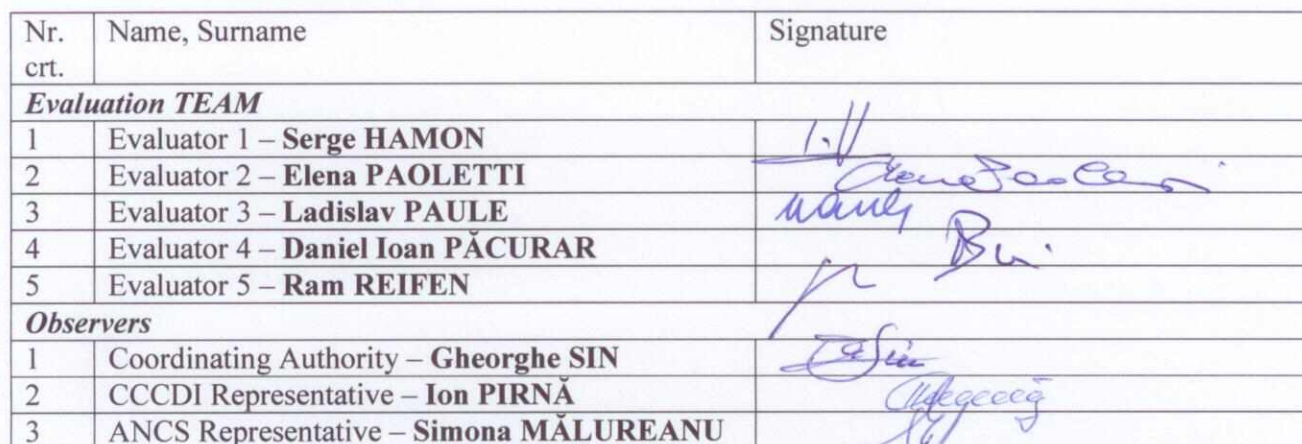 Nr. Name, Surname Signature
crt.
Evaluation TEAM
1 Evaluator 1 – Serge HAMON
2 Evaluator 2 – Elena PAOLETTI
3 Evaluator 3 – Ladislav PAULE
4 Evaluator 4 – Daniel Ioan PĂCURAR
5 Evaluator 5 – Ram REIFEN
Observers
1 Coordinating Authority – Gheorghe SIN
2 CCCDI Representative – Ion PIRNĂ
3 ANCS Representative – Simona MĂLUREANU